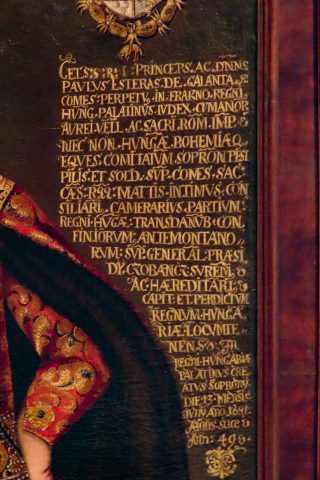 CELS: S: R: I: PRINCEPS. AC. DNNS
PAVLVS ESTERAS. DE. GALANTA
COMES. PERPET, IN. FRAKNO. REGNI
HVNG. PALATINVS. IVDEX. CVMANOR
AVREI VELL. AC. SACRI. ROM. IMP.
NEC NON. HVNGÆ. BOHEMIÆQ
EQVES. COMITATVM SOPRON PEST
PILIS. ET SOLD. SVP. COMES. SAC
CÆS. MATTIS. INTIMVS. CON
SILIARI. CAMERARIVS. PARTIVM.
REGNI. HVGÆ. TRANSDANVB. CON
FINIORVM. ANTEMONTANO
RVM: SVP. GENERAL. PRÆSI
DY.
AC. HÆREDITARI.
CAPIT: ET. PERDICTVM
REGNVM. HVNGÆ
RIÆ. LOCVMTE
NENS
REGNI. HVNGARIÆ
PALATINVS CRE
ATVS SOPRONY
DIE. 13. MENSIS
IVNY. ANO. 1681.
ÆTATIS. SVÆ
Ann: 49